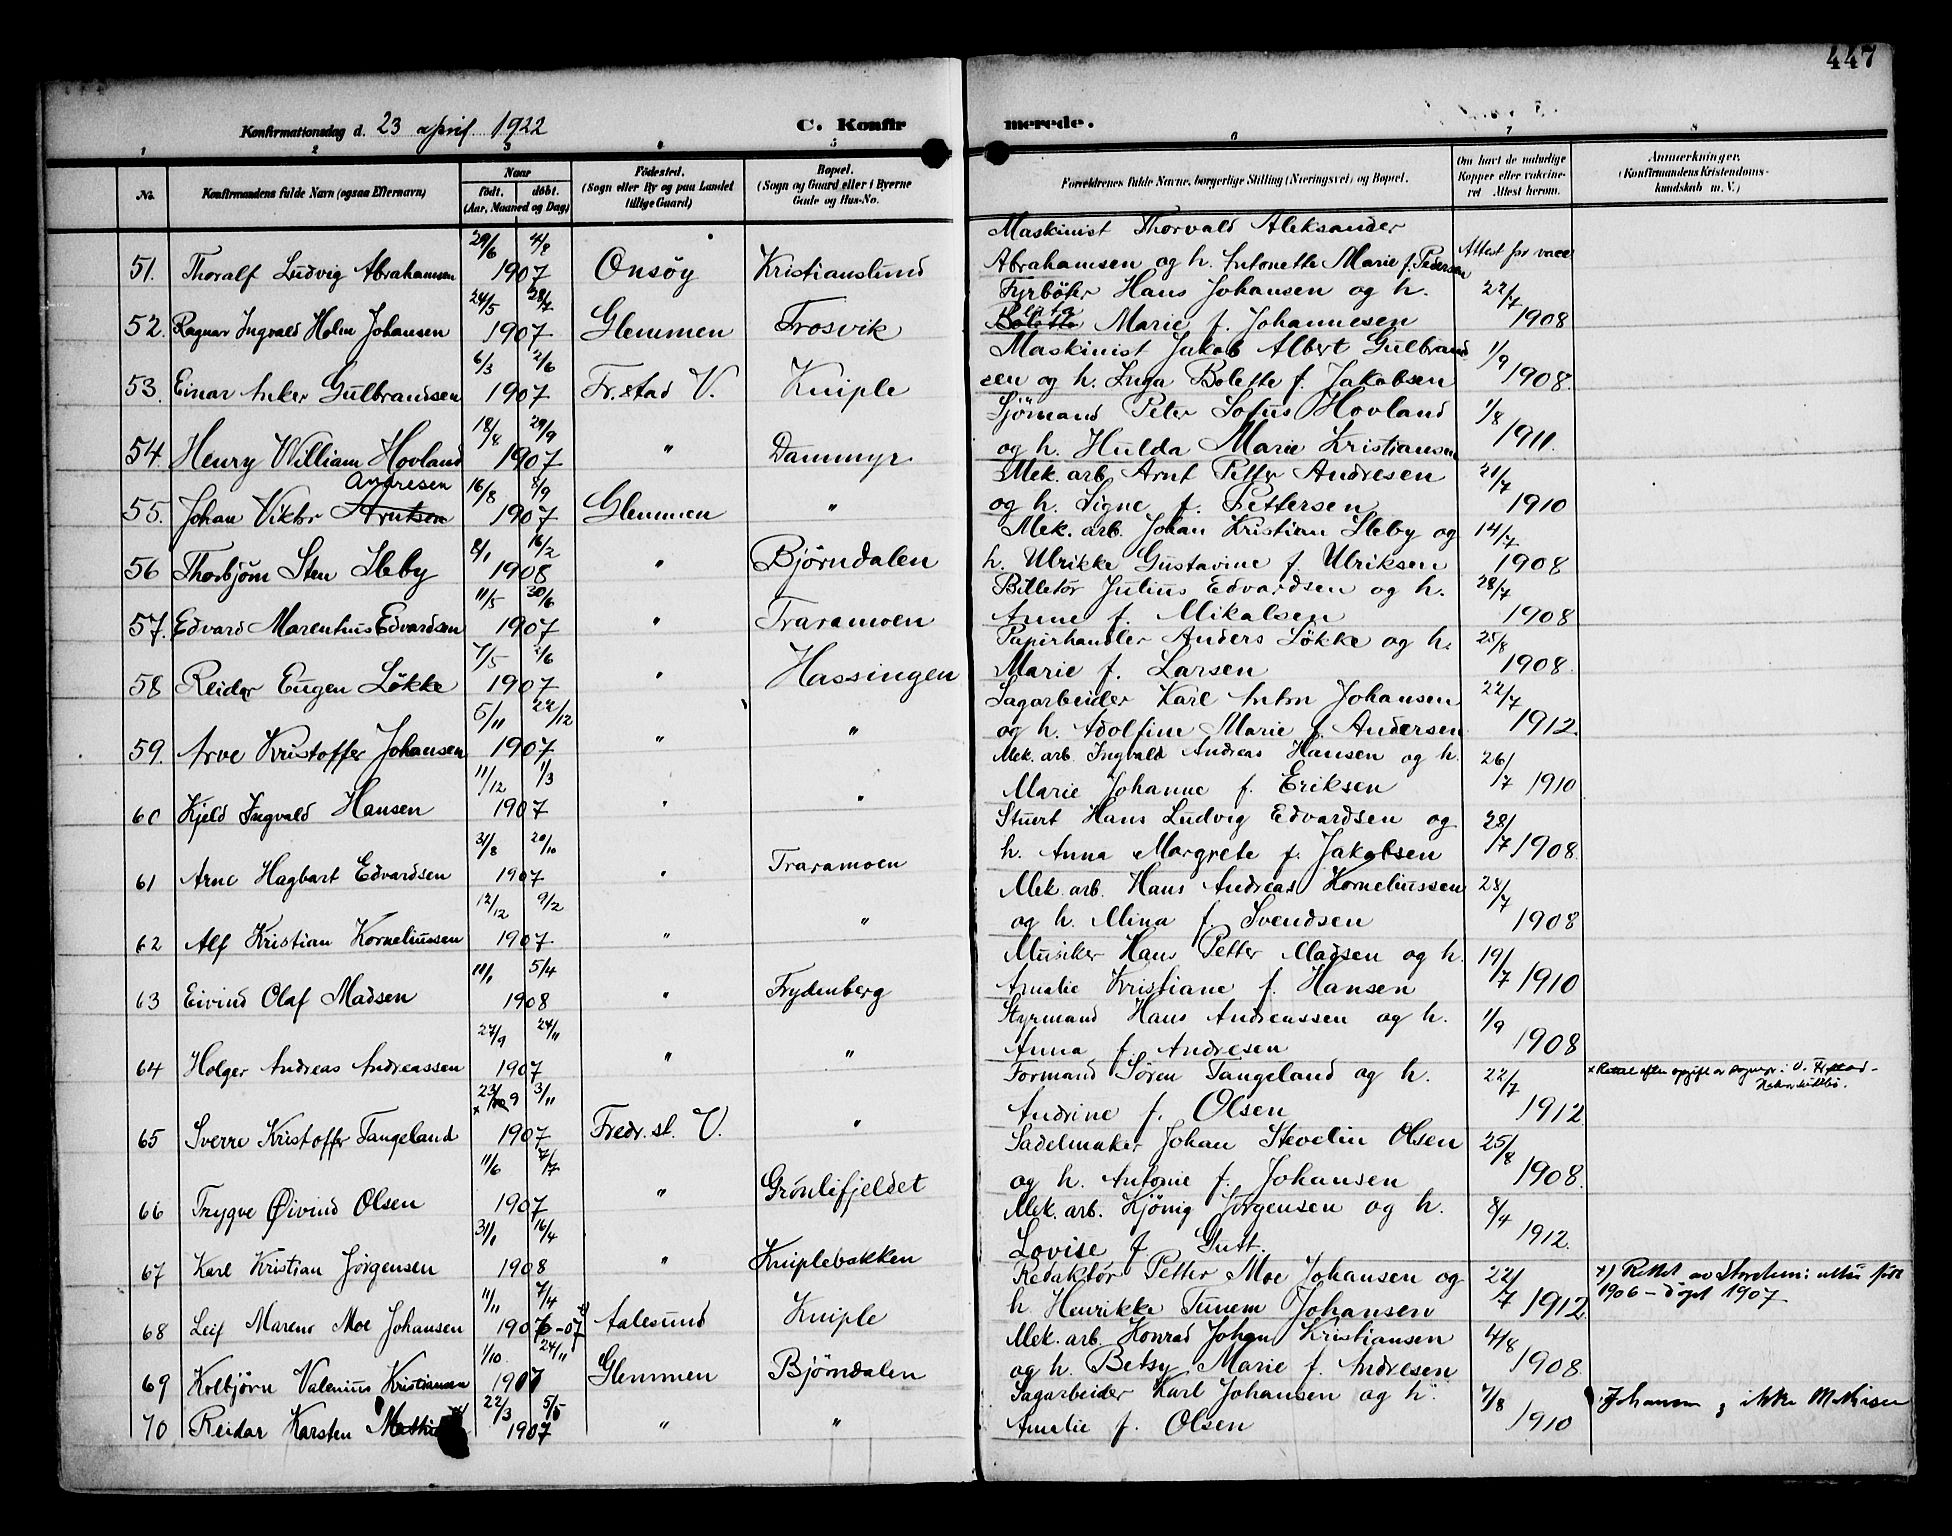 447
Konfirmationsdag d. 23 april 1922 C. Konfirmerede.
1 2 3 4 5 6 7 8
No. Konfirmandens fulde Navn (ogsaa Efternavn) Naar født. døbt. (Aar, Maaned og Dag) Fødested. (Sogn eller By og paa Landet tillige Gaard) Bopæl. (Sogn og Gaard eller i Byerne Gade og Hus-No. Forældrenes fulde Navne, borgerlige Stilling (Næringsvei) og Bopæl. Om havt de naturlige Kopper eller vaccineret. Attest herom. Anmærkninger. (Konfirmandens Kristendomskundskab m. V.)
Maskinist Thorvald Aleksander
51. Thoralf Ludvig Abrahamsen 29/6 4/8 1907 Onsøy Kristianslund Abrahamsen og h. Antonette Marie f. Pedersen Attest for vacc
Fyrbøter Hans Johansen og h. 22/7
52. Ragnar Ingvald Holm Johansen 24/5 28/7 1907 Glemmen Trosvik Bolette Marie f. Johannesen 1908
Maskinist Jakob Albert Gulbrand 1/9
53. Einar Anker Gulbrandsen 6/3 2/6 1907 Fr.stad V. Kniple sen og h. Inga Bolette f. Jakobsen 1908.
Sjømand Peter Sofus Hovland 1/8
54. Henry William Hovland 18/8 29/9 1907 " Dammyr og h. Hulda Marie Kristiansen 1911.
Andresen Mek. arb. Arnt Petter Andresen 21/7
55. Johan Viktor Arntsen 16/8 8/9 1907 Glemmen " og h. Signe f. Pettersen 1910
Mek. arb. Johan Kristian Sleby og 14/7
56 Thorbjørn Sten Sleby 8/1 16/2 1908 " Bjørndalen h. Ulrikke Gustavine f. Ulriksen 1908
Billetør Julius Edvardsen og h. 28/7
57. Edvard Marenhus Edvardsen 11/5 30/6 1907 " Traramoen Anne f. Mikalsen 1908
Papirhandler Anders Løkke og h. 25/8
58 Reidar Eugen Løkke 7/5 2/6 1907 " Hassingen Marie f. Larsen 1908.
Sagarbeider Karl Anton Johansen 22/7
59. Arve Kristoffer Johansen 5/11 22/12 1907 " " og h. Adolfine Marie f. Andersen 1912.
Mek. arb. Ingvald Andreas Hansen og h. 26/7
60 Kjeld Ingvald Hansen 11/12 1/3 1907 " " Marie Johanne f. Eriksen 1910
Stuert Hans Ludvig Edvardsen og 28/7
61 Arne Hagbart Edvardsen 31/8 20/10 1907 " Traramoen h. Anna Margrete f. Jakobsen 1908.
Mek. arb. Hans Andreas Korneliussen 28/7
62 Alf Kristian Korneliussen 12/12 9/2 1907 " " og h. Mina f. Svendsen 1908
Musiker Hans Petter Madsen og h. 19/7
63 Eivind Olaf Madsen 11/1 5/4 1908 " Frydenberg Amalie Kristiane f. Hansen 1910
Styrmand Hans Andreassen og h. 1/9
64 Holger Andreas Andreassen 27/9 24/11 1907 " " Anna f. Andresen 1908
Formand Søren Tangeland og h. 22/7 x Rettet efter opgift av sognepr. i V. Fr.stad
65 Sverre Kristoffer Tangeland x 23/9 3/11 1907 Fredr.st. V. " Andrine f. Olsen 1912
Sadelmaker Johan Stevelin Olsen 25/8
66 Trygve Øivind Olsen 11/6 7/7 1907 " Grønlifjeldet og h. Antonie f. Johansen 1908.
Mek. arb. Hjönig Jørgensen og h. 8/4
67 Karl Kristian Jørgensen 31/1 16/4 1908 " Kniplebakken Lovise f. Gutt. 1912.
Redaktør Petter Moe Johansen og 22/7 x) Rettet av : født
68 Leif Marenr Moe Johansen 11/11 7/4 1906-07 Aalesund Kniple h. Henrikke Tunem Johansen 1912 1906 - døpt 1907
Mek. arb. Konrad Johan Kristiansen 4/8
69 Kolbjørn Valenius Kristiansen 1/10 24/11 1907 Glemmen Bjørndalen og h. Betsy Marie f. Andresen 1908.
Sagarbeider Karl Johansen og h. 7/8 Johansen, ikke Mathisen
70 Reidar Karsten 22/3 5/5 1907 " " Amalie f. Olsen 1910